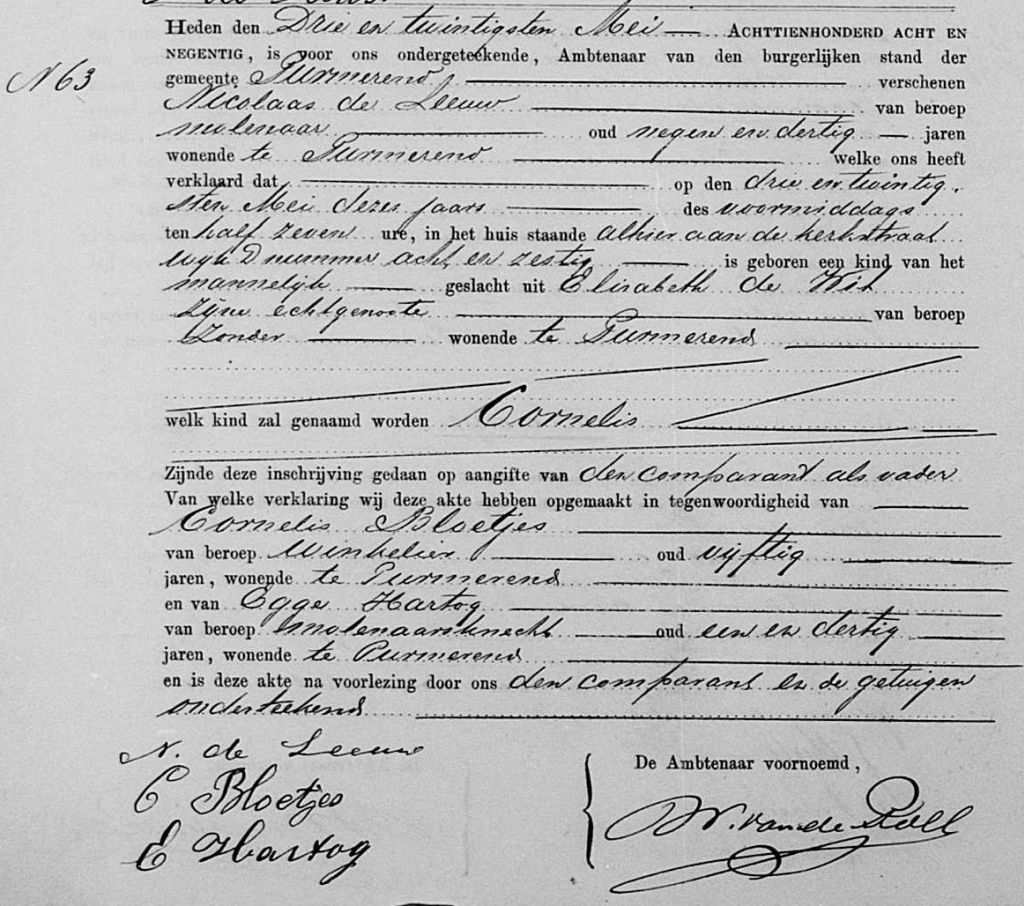 N 63
Heden den Drie en twintigsten Mei ACHTTIENHONDERD ACHT EN
NEGENTIG, is voor ons ondergeteekende, Ambtenaar van den burgerlijken stand der
gemeente Purmerend, verschenen
Nicolaas de Leeuw van beroep
molenaar oud negen en dertig jaren
wonende te Purmerend welke ons heeft
verklaard dat op den drie en twintig
sten Mei dezes jaars des voormiddags
ten half zeven ure, in het huis staande alhier aan de kerkstraat
wijk D nummer acht en zestig is geboren een kind van het
mannelijk geslacht uit Elisabeth de Wit
zijne echtgenoote van beroep
Zonder wonende te Purmerend
welk kind zal genaamd worden Cornelis
Zijnde deze inschrijving gedaan op aangifte van den comparant als vader
Van welke verklaring wij deze akte hebben opgemaakt in tegenwoordigheid van
Cornelis Bloetjes
van beroep Winkelier oud vijftig
jaren, wonende te Purmerend
en van Egge Hartog
van beroep molenaarsknecht oud een en dertig
jaren, wonende te Purmerend
en is deze akte na voorlezing door ons den comparant en de getuigen
onderteekend
N. de Leeuw
C Bloetjes
E Hartog
De Ambtenaar voornoemd,
W. van de Poll